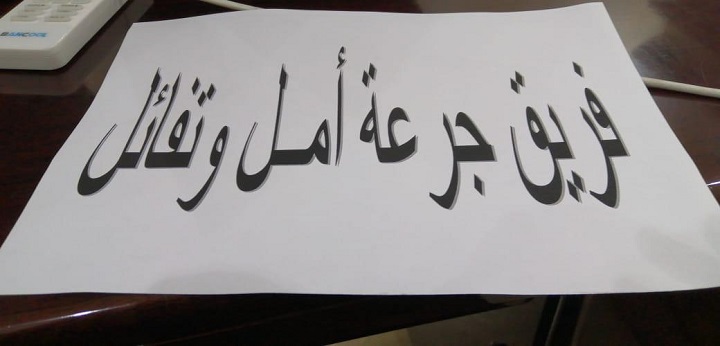 فريق جرعة أمل وتفائل